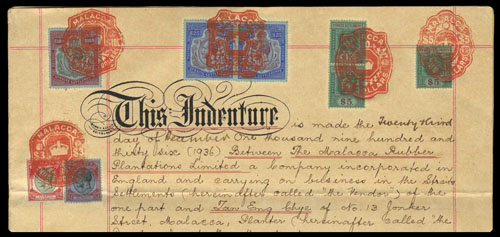 MALACCA
MALACCA
MALACCA
$5
$5
DOLLARS
This Indenture is made the Twenty third
day of December One thousand nine hundred and
thirty six (1936) Between The Malacca Rubber
Plantations Limited a Company incorporated in
England and carrying on business in the Straits
Settlements (hereinafter called "the Vendor") of the
one part and Tan Eng Chye of No. 13 Jonker
Street, Malacca, Planter (hereinafter called "the
MALACCA